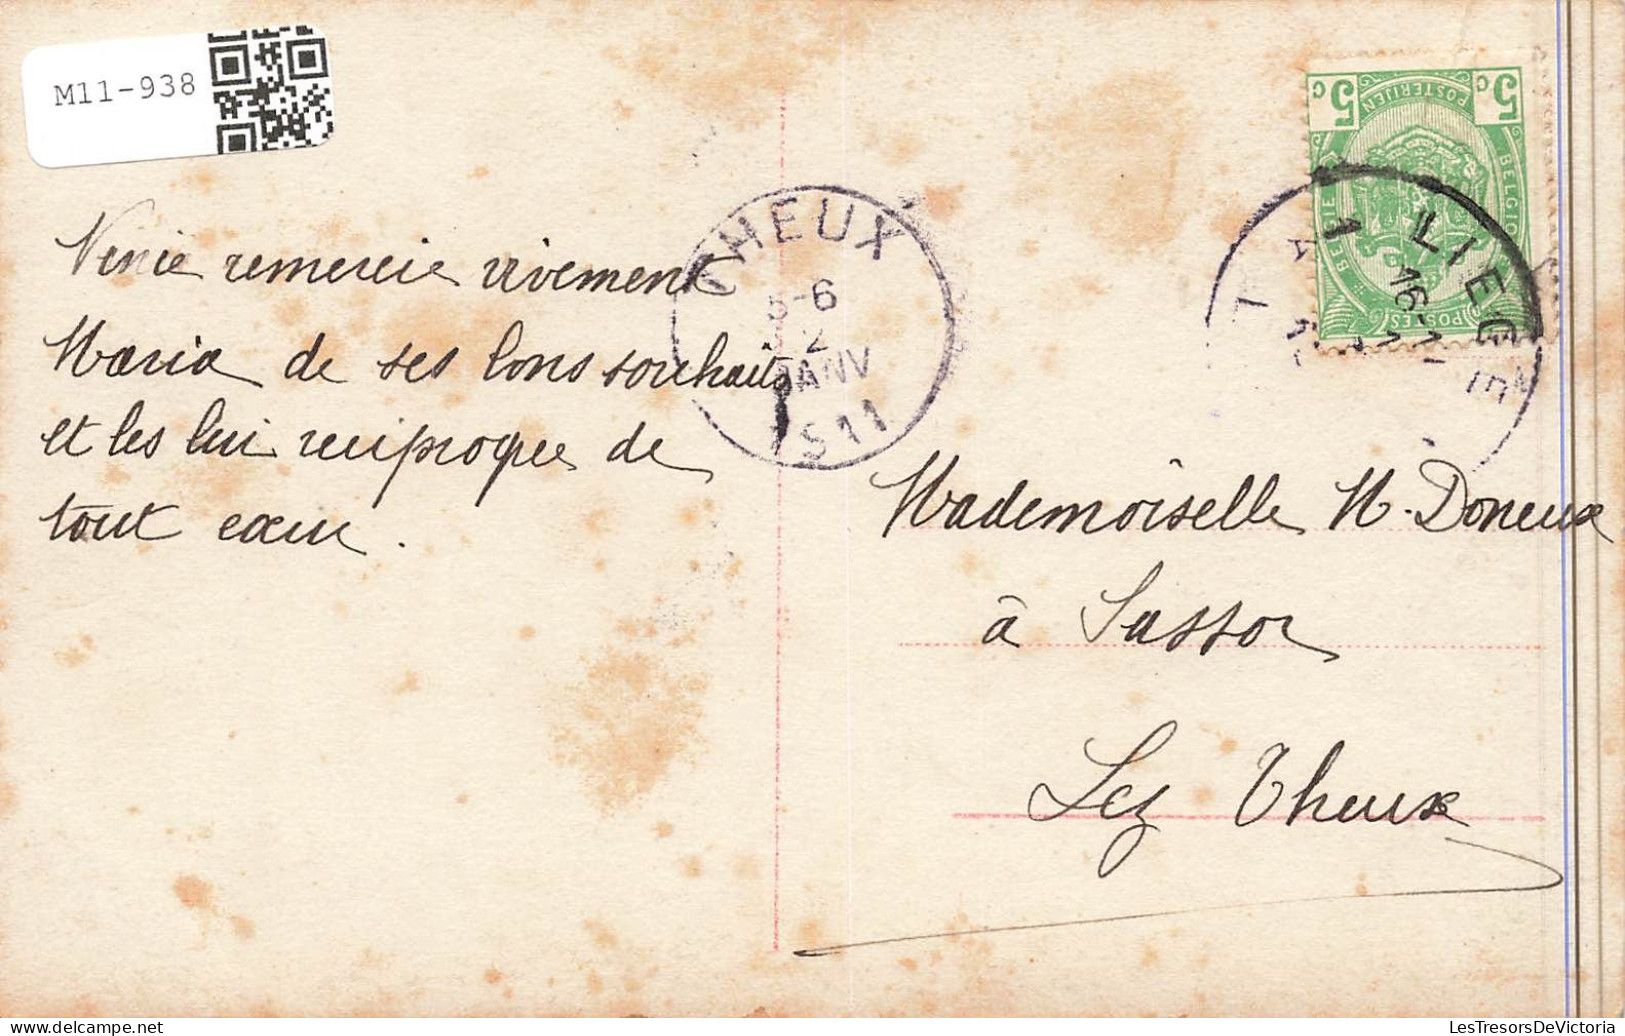 M11-938
remercie vivement
Maria de ses bons souhaits
et les lui réciproque de
tout cœur.
THEUX
5-6
2
JANV
1911
5c POSTERIJEN 5c
BELGIE BELGIQUE
POSTES
LIEGE
1
Mademoiselle M. Doneux
à Sassor
Lez Theux
LesTresorsDeVictoria